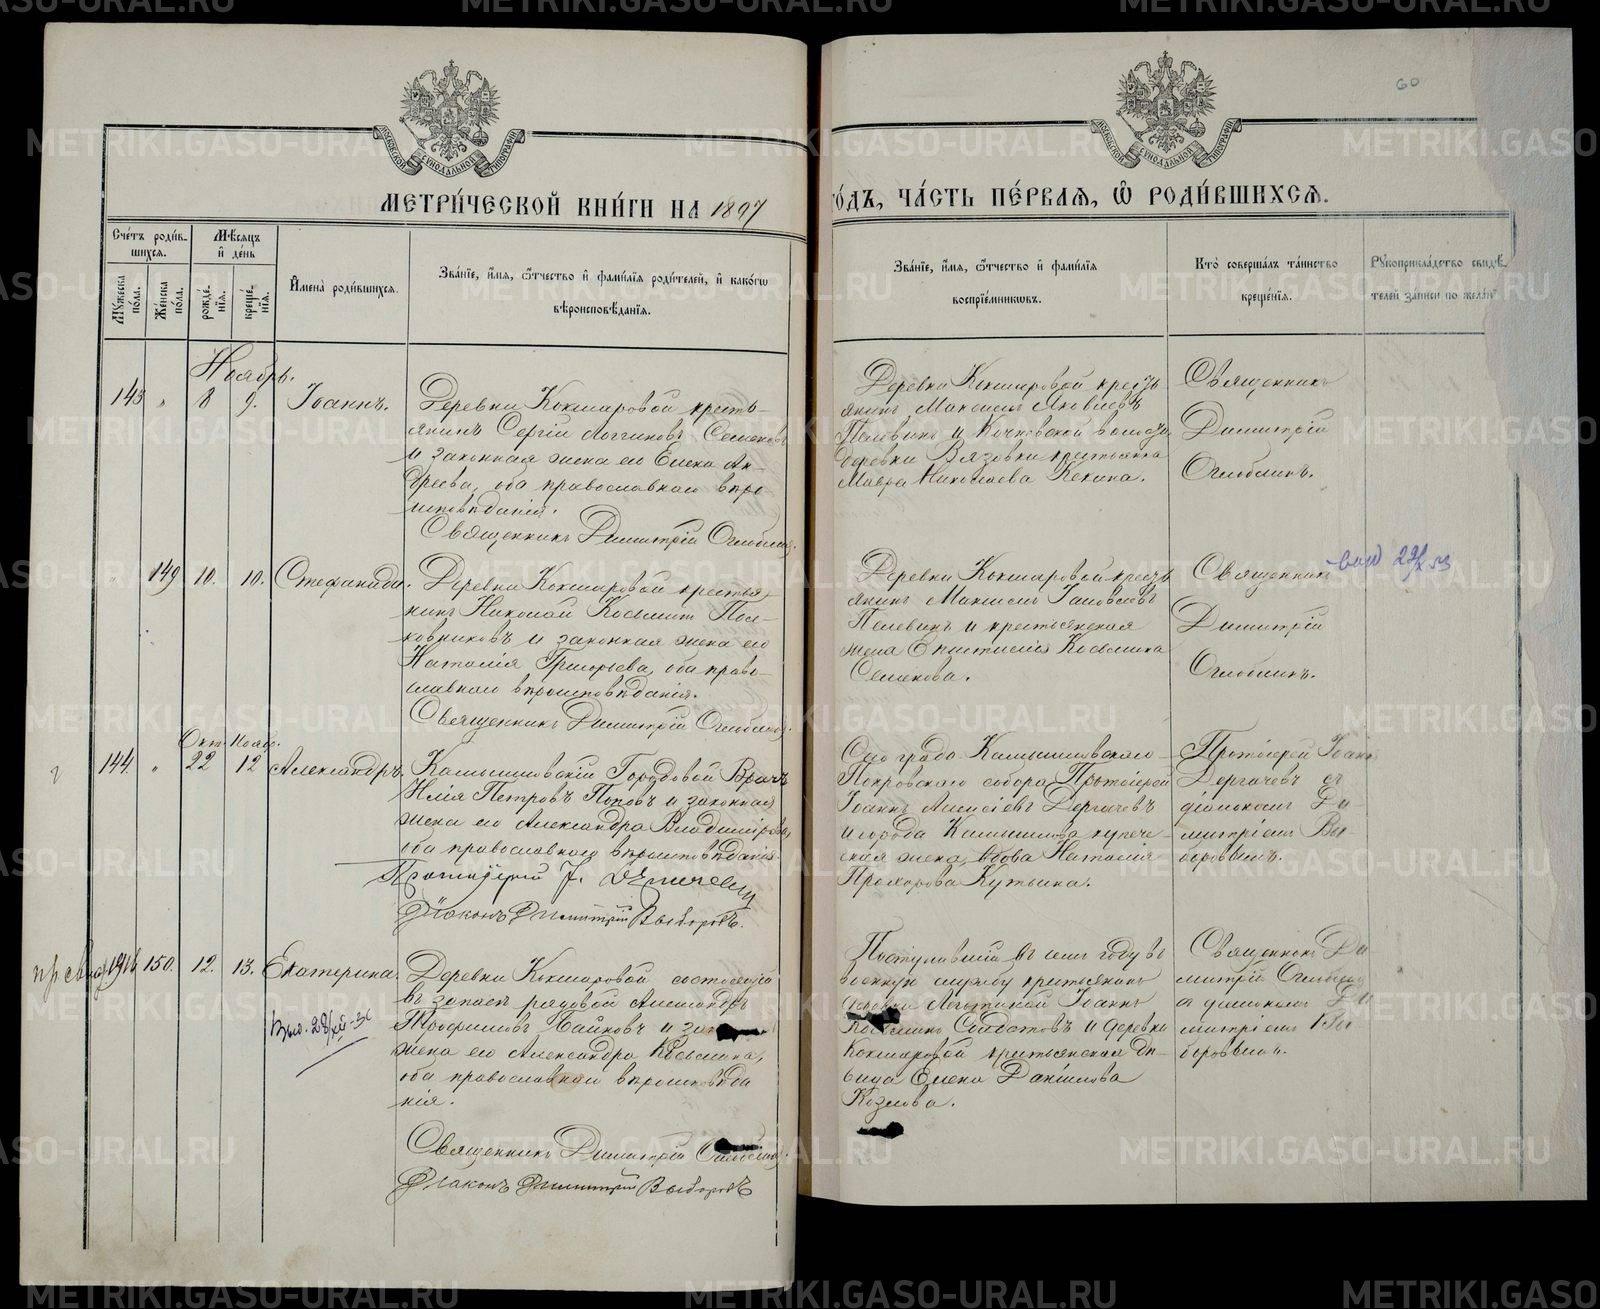 60
МЕТРИ́ЧЕСКОЙ КНИ́ГИ НА 1897
ГО́ДЪ, ЧА́СТЬ ПЕ́РВАЯ, Ѽ РОДИ́ВШИХСЯ.
Сче́тъ роди́в-
шихся.
Мѣ́сяцъ
и҆ де́нь
Мꙋ́жеска по́ла.
Же́нска по́ла.
рожде́-
нїѧ.
креще́-
нїѧ.
И҆мена̀ роди́вшихся.
Зва́нїе, и҆́мя, ѻ҆́тчество и҆ фами́лїя роди́телей, и҆ како́гѡ
вѣроисповѣ́данїя.
Зва́нїе, и҆́мя, ѻ҆́тчество и҆ фами́лїя
воспрїе́мникѡвъ.
Кто̀ соверша́лъ та́инство
креще́нїя.
Рꙋкоприкла́дство свидѣ́-
телей за́писи по жела́нї
Ноябрь.
143 " 8 9. Іоаннъ.
Деревни Кокшаровой кресть-
янинъ Сергій Логгиновъ Семеновъ
и законная жена его Елена Ан-
дреева, оба православнаго вѣро
исповѣданія.
Священникъ Димитрій Оглоблинъ.
Деревни Кокшаровой кресть
янинъ Максимъ Яковлевъ
Пелевинъ и Кочневской волости
деревни Вязовки крестьянка
Мавра Николаева Кекина.
Священникъ
Димитрій
Оглоблинъ.
" 149 10. 10. Стефанида.
Деревни Кокшаровой крестья
нинъ Николай Косьминъ Пол-
ковниковъ и законная жена его
Наталія Григорьева, оба право-
славнаго вѣроисповѣданія.
Священникъ Димитрій Оглоблинъ.
Деревни Кокшаровой кресть
янинъ Максимъ Іаковлевъ
Пелевинъ и крестьянская
жена Епистимія Косьмина
Семенова.
Священникъ
Димитрій
Оглоблинъ.
Окт. Нояб.
144. " 22 12 Александръ.
Камышловскій Городовой Врачъ
Илія Петровъ Поповъ и законная
жена его Александра Владимірова,
оба православнаго вѣроисповѣданія.
Протоіерей І. Дергачевъ
Діаконъ Димитрій Выборовъ.
Сего града Камышловскаго
Покровскаго собора Протоіерей
Іоаннъ Алексіевъ Дергачевъ
и города Камышлова купече-
ская жена вдова Наталія
Прохорова Кутьина.
Протоіерей Іоаннъ
Дергачевъ съ
діакономъ Ди-
митріемъ Вы-
боровымъ.
1916 150. 12. 13. Екатерина.
Деревни Кокшаровой состоящій
въ запасѣ рядовой Александръ
Трофимовъ Пайковъ и зак
жена его Александра Косьмина,
оба православнаго вѣроисповѣда
нія.
Священникъ Димитрій
Діаконъ Димитрій Выборовъ
Поступившій въ семъ году въ
военную службу крестьянинъ
деревни Іоаннъ
и деревни
Кокшаровой крестьянская дѣ-
вица Елена Даніилова
Козлова.
Священникъ Ди
митрій Оглоблинъ
съ діакономъ Ди
митріемъ Вы
боровымъ.
METRIKI.GASO-URAL.RU